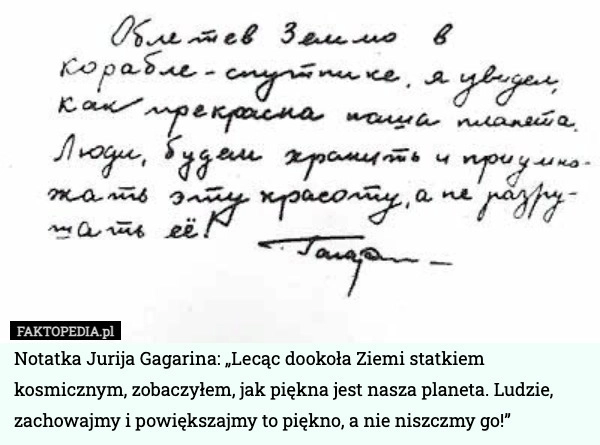 Облетев Землю в
корабле-спутнике, я увидел,
как прекрасна наша планета.
Люди, будем хранить и приумно-
жать эту красоту, а не разру-
шать её!
Гагарин
FAKTOPEDIA.pl
Notatka Jurija Gagarina: „Lecąc dookoła Ziemi statkiem
kosmicznym, zobaczyłem, jak piękna jest nasza planeta. Ludzie,
zachowajmy i powiększajmy to piękno, a nie niszczmy go!”